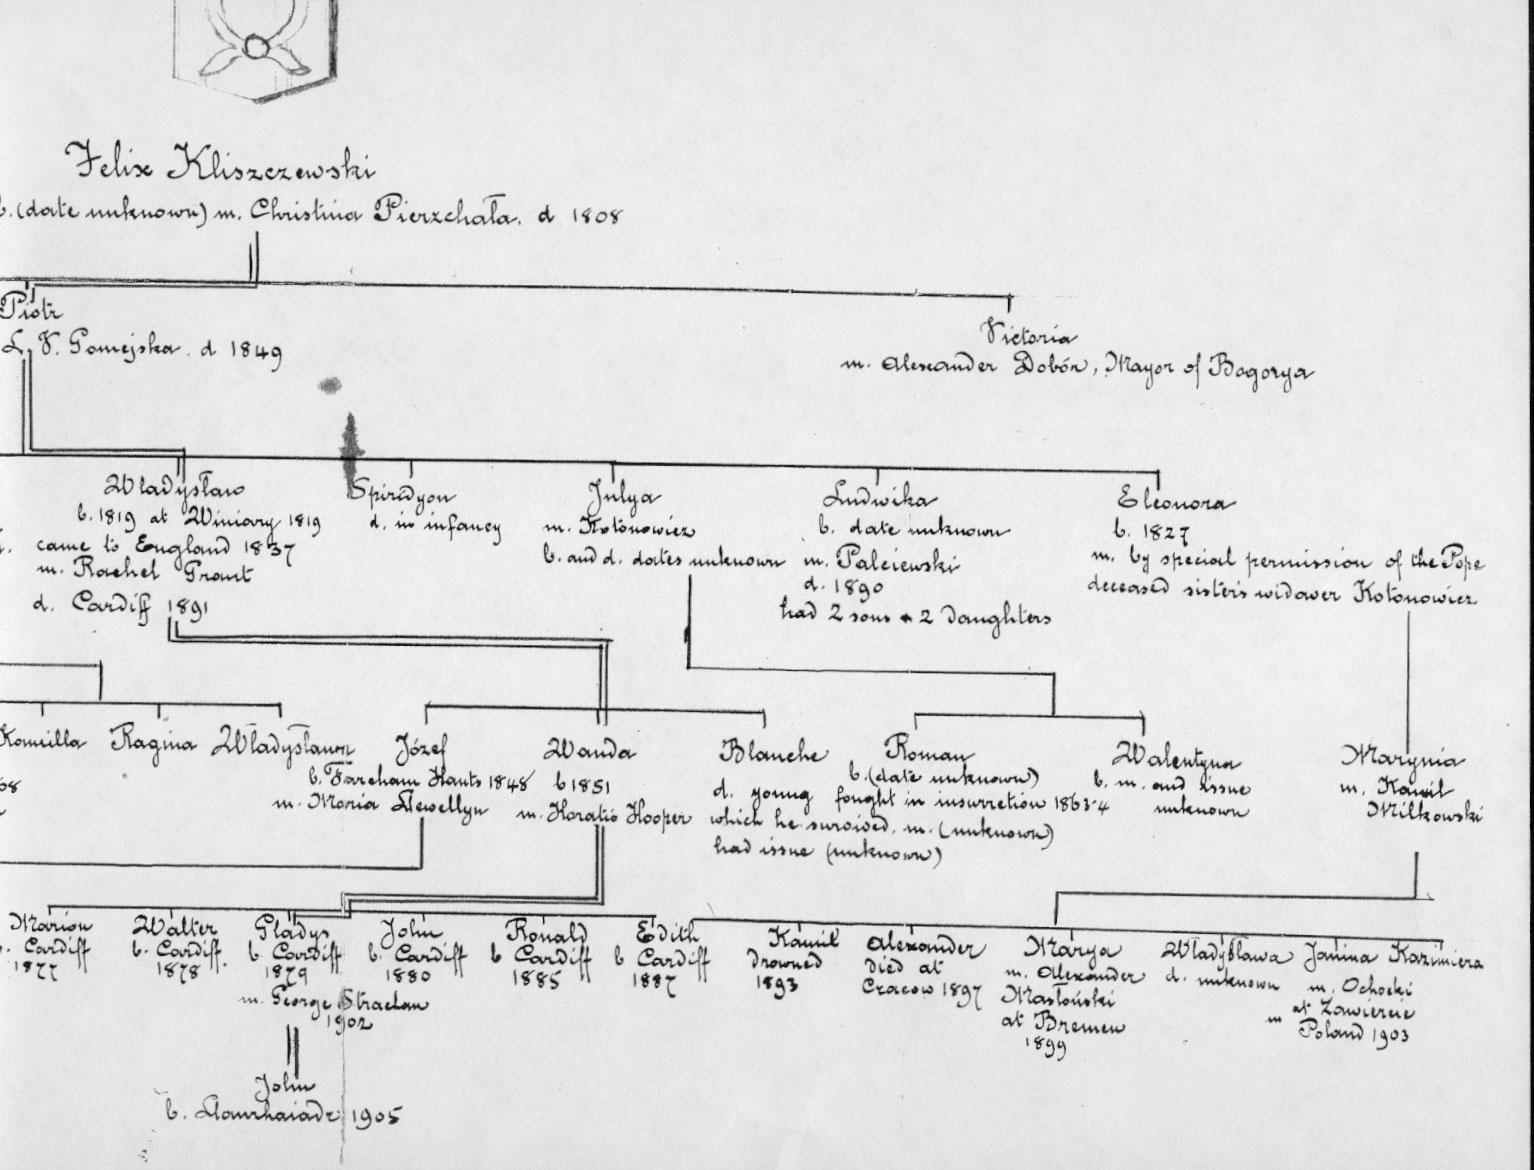 Felix Kliszczewski
b. (date unknown) m. Christina Pierzchała. d 1808
Piotr
V. Gomejska. d 1849
Victoria
m. Alexander Dobór, Mayor of Bogorya
Władysław
b. 1819 at Winiary 1819
came to England 1837
m. Rachel Grant
d. Cardiff 1891
Spirydyon
d. in infancy
Julya
m. Kotonowicz
b. and d. dates unknown
Ludwika
b. date unknown
m. Palciewski
d. 1890
had 2 sons & 2 daughters
Eleonora
b. 1827
m. by special permission of the Pope
deceased sister's widower Kotonowicz
Kamilla
Ragina
Władysława
Józef
b. Fareham Hants 1848
m. Maria Llewellyn
Wanda
b 1851
m. Horatio Hooper
Blanche
d. young
Roman
b. (date unknown)
fought in insurretion 1863-4
which he survived. m. (unknown)
had issue (unknown)
Walentyna
b. m. and issue
unknown
Marynia
m. Kamil
Milkowski
Marion
b. Cardiff
1877
Walter
b. Cardiff.
1878
Gladys
b Cardiff
1879
m. George Strachan
1902
John
b. Cardiff
1880
Ronald
b Cardiff
1885
Edith
b Cardiff
1887
Kamil
drowned
1893
Alexander
died at
Cracow 1897
Marya
m. Alexander
Masłoński
at Bremen
1899
Władysława
d. unknown
Janina
m. Ochocki
at Zawiercie
m Poland 1903
Kazimiera
John
b. Llanrhaiadr 1905